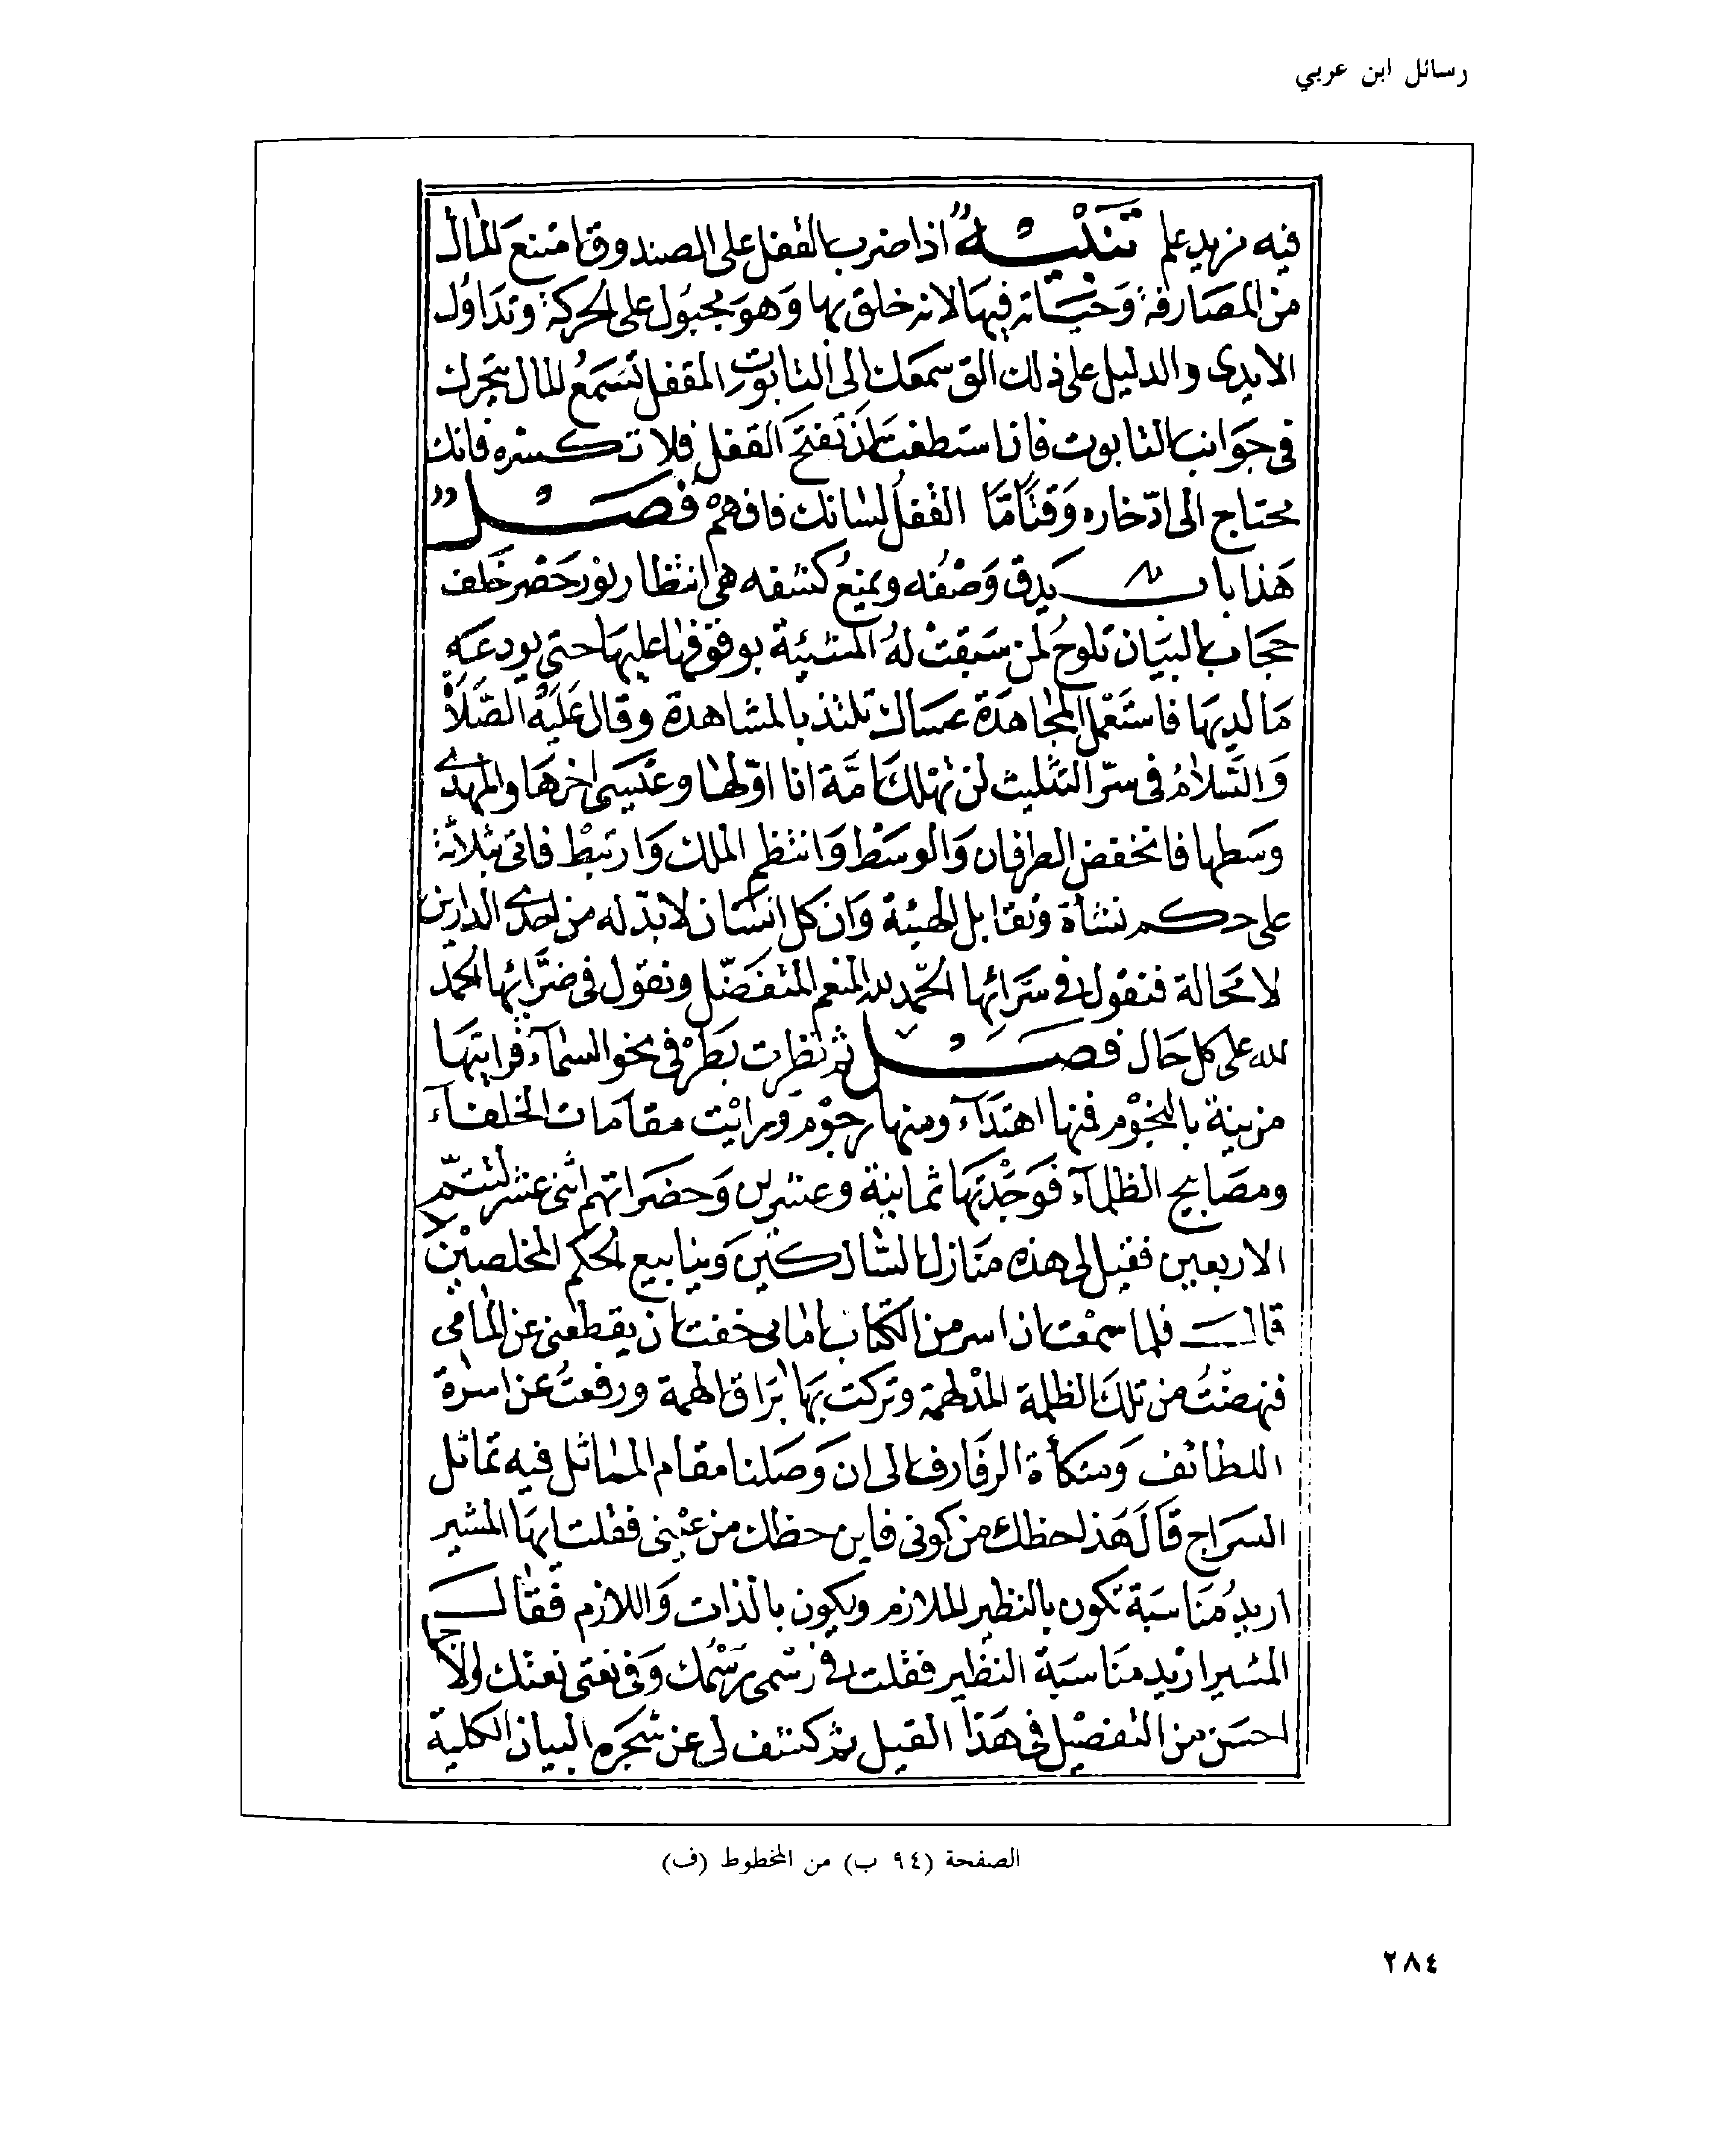 رسائل ابن عربي
فيه مزيد علم تنبيه اذا ضرب القفل على الصندوق امتنع المال
من المصارفة وحياته فيها لانه خلق بها وهو مجبول على الحركة وتداول
الايدى والدليل على ذلك الق سمعك الى التابوت المقفل تسمع المال يتحرك
فى جوانب التابوت فاذا استطعت ان تفتح القفل فلا تكسره فانك
محتاج الى ادّخاره وقتًا مّا القفل لسانك فافهم فصل
هذا باب يدق وصفه ويمنع كشفه هى انتظار نور حضر خلف
حجاب البيان تلوح لمن سبقت له المشيئة بوقوفها عليها حتى يودعه
ما لديها فاستعمل المجاهدة عساك تلتذ بالمشاهدة وقال عليه الصّلاة
والسّلامُ فى سرّ التثليث لن تهلك امّة انا اوّلها وعيسى اخرها والمهدى
وسطها فانخفض الطرفان والوسط وانتظم الملك وارتبط فاتى بثلاثة
على حكم نشأة وتقابل الهيئة وان كل انسان لا بدّ له من احدى الدارين
لا محالة فنقول فى سرّائها الحمد لله المنعم المتفضّل ونقول فى ضرّائها الحمد
لله على كل حال فصل ثم نظرت بطرفى نحو السماء فرايتها
مزينة بالنجوم فمنها اهتداء ومنها رجوم ورايت مقامات الخلفاء
ومصابيح الظلماء فوجدتها ثمانية وعشرين وحضراتهم اثنى عشر لتتم
الاربعين فقيل لى هذه منازل السالكين وينابيع الحكم المخلصين
قال فلما سمعت ان اسر من الكتاب امامى خفت ان يقطعنى عن المامى
فنهضتُ من تلك الظلمة المدلهمة وتركت بها براق الهمة ورفعتُ عن اسرة
اللطائف ومتكأة الرفارف الى ان وصلنا مقام المماثل فيه تماثل
السراج قال هذا حظك من كونى فاين حظك من عينى فقلت ايها المشير
اريد مناسبة تكون بالنظير الملازم ويكون بالذات واللازم فقال
المشير اريد مناسبة النظير فقلت فى رسمى رسمك وفى نعتى نعتك ولا
احسن من التفصيل فى هذا القبيل ثم كشف لى عن شجرة البيان الكلية
الصفحة (٩٤ ب) من المخطوط (ف)
٢٨٤